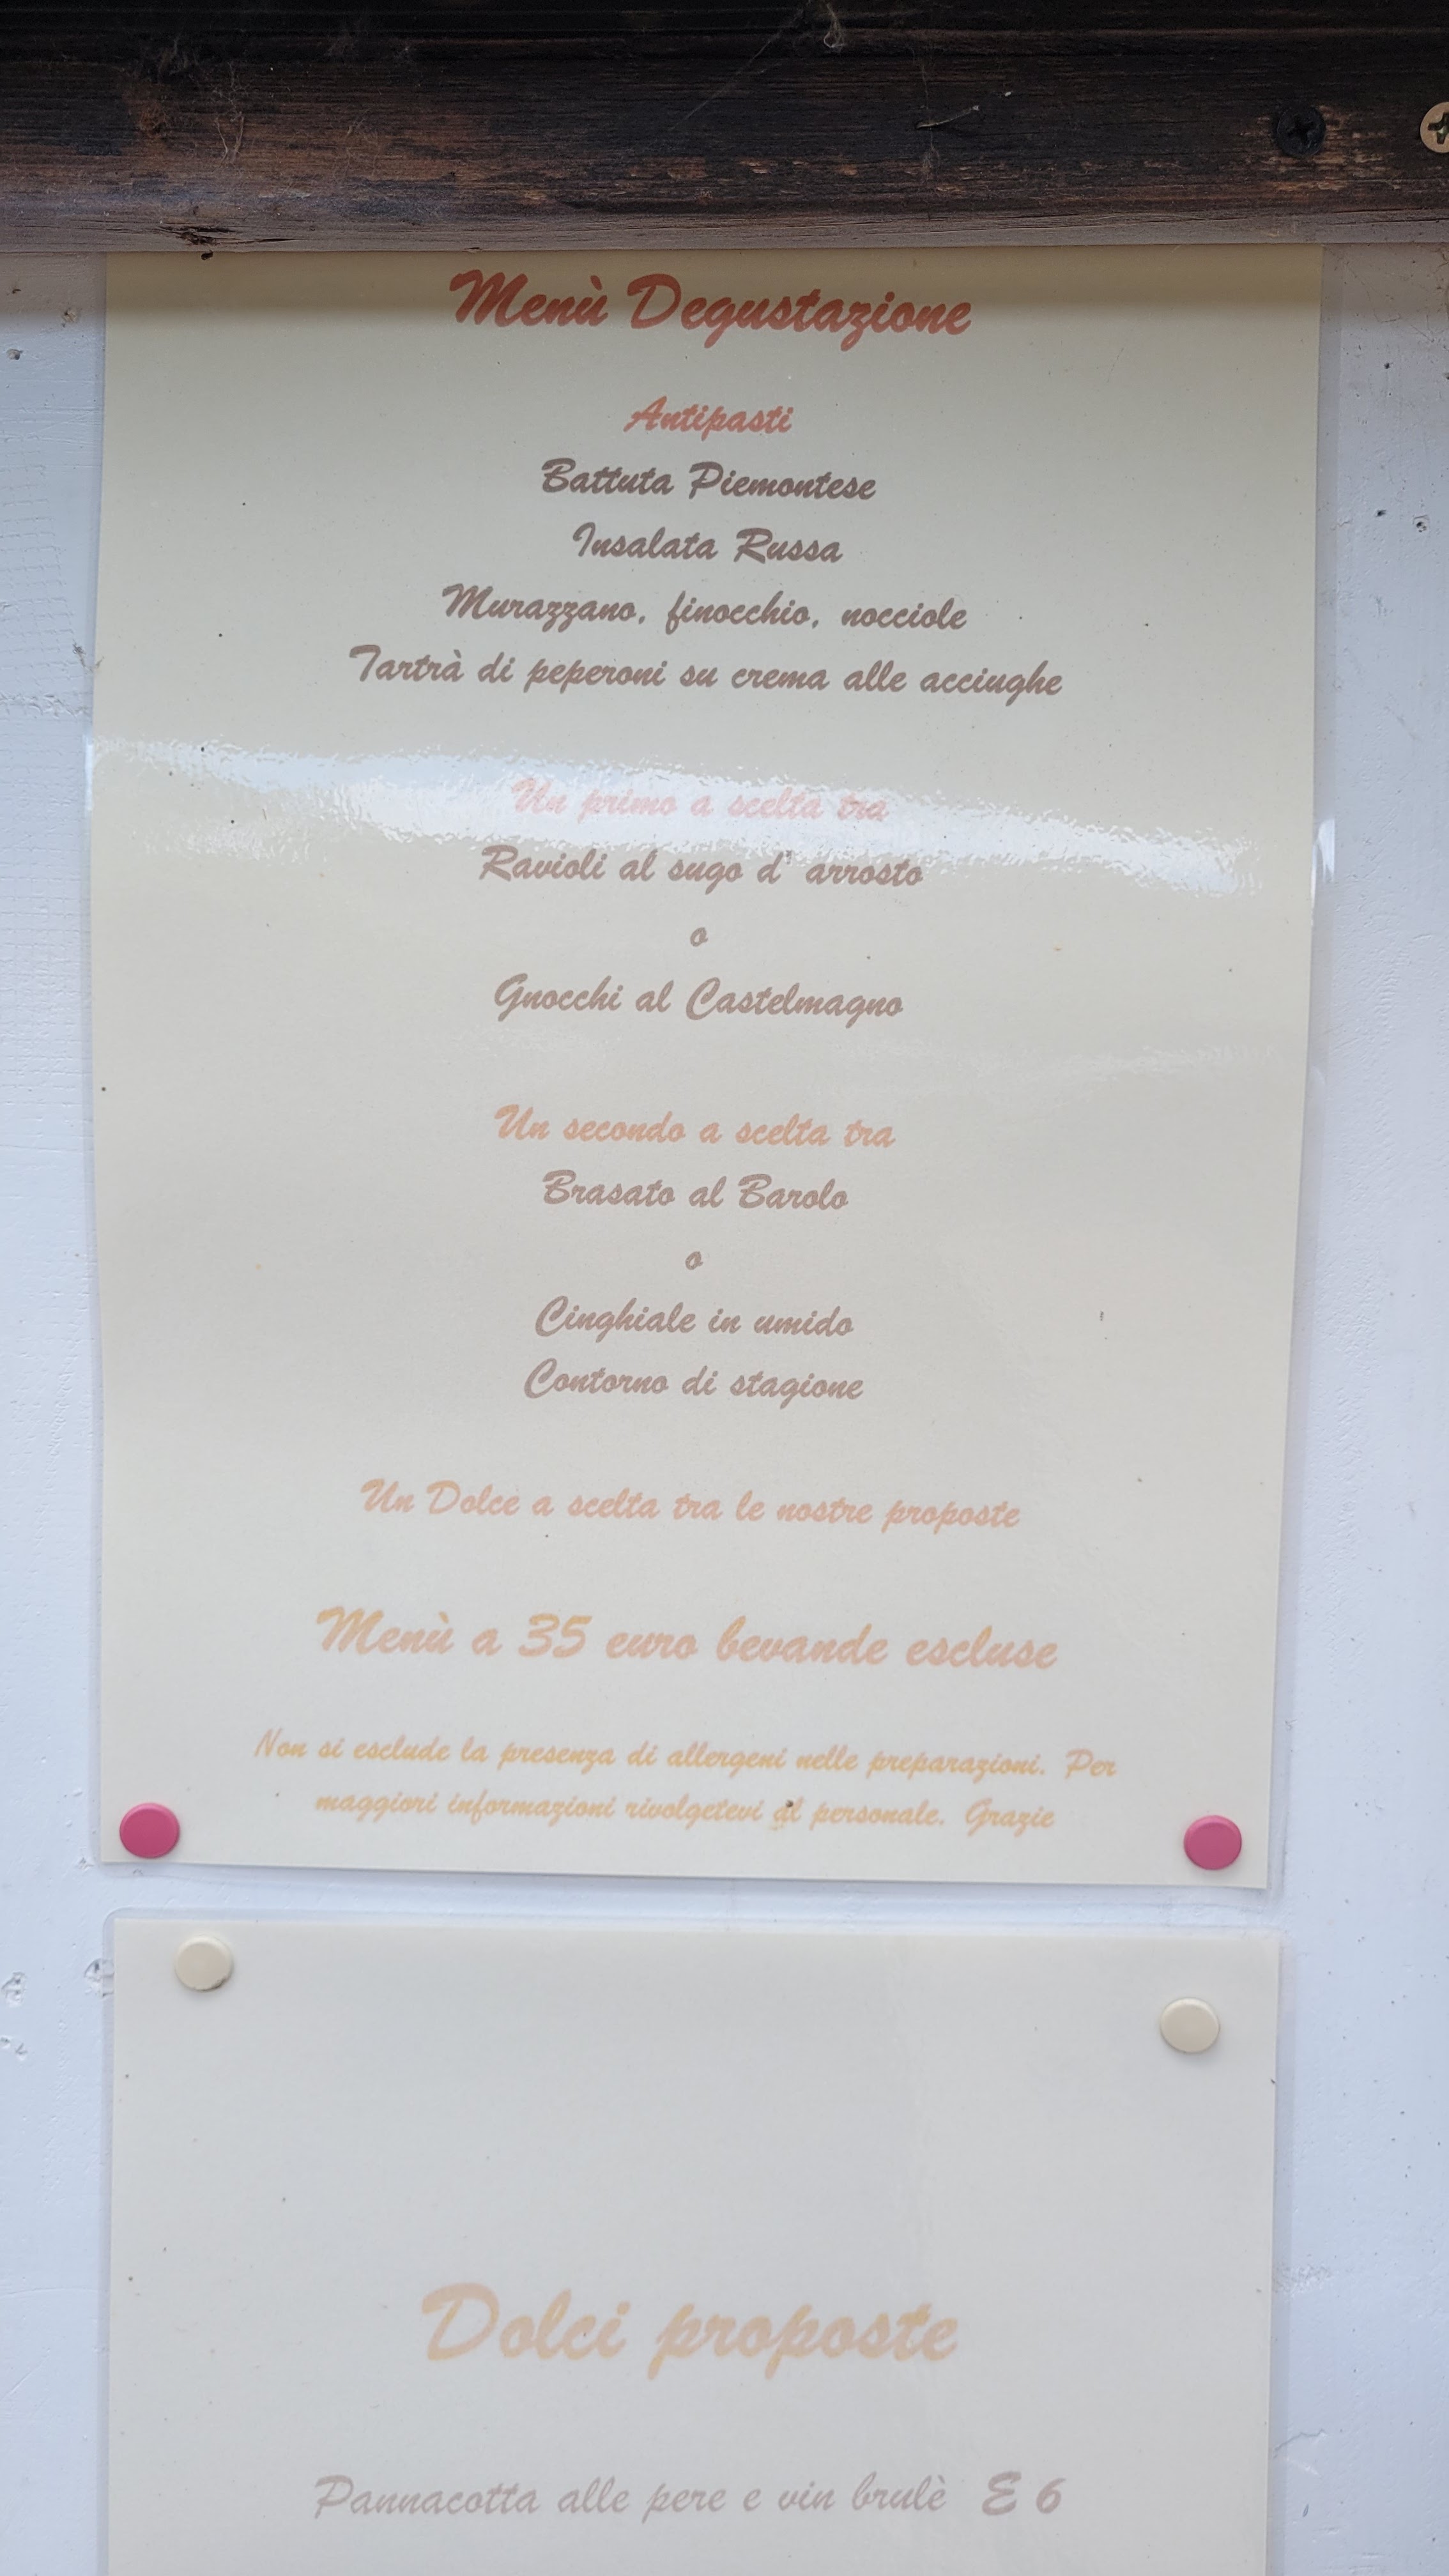 Menù Degustazione
Antipasti
Battuta Piemontese
Insalata Russa
Murazzano, finocchio, nocciole
Tartrà di peperoni su crema alle acciughe
Un primo a scelta tra
Ravioli al sugo d' arrosto
o
Gnocchi al Castelmagno
Un secondo a scelta tra
Brasato al Barolo
o
Cinghiale in umido
Contorno di stagione
Un Dolce a scelta tra le nostre proposte
Menù a 35 euro bevande escluse
Non si esclude la presenza di allergeni nelle preparazioni. Per
maggiori informazioni rivolgetevi al personale. Grazie
Dolci proposte
Pannacotta alle pere e vin brulè E 6